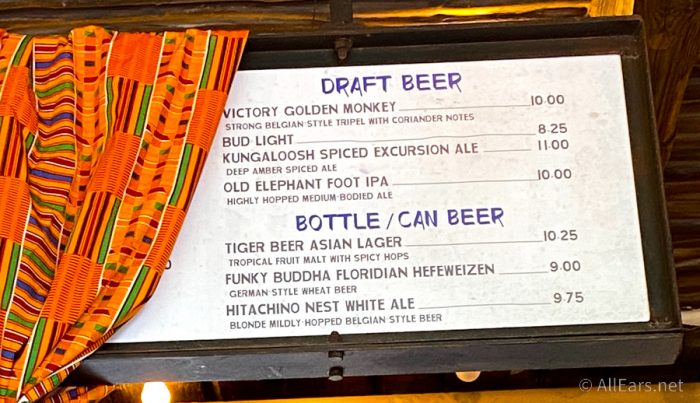 DRAFT BEER
VICTORY GOLDEN MONKEY 10.00
STRONG BELGIAN-STYLE TRIPEL WITH CORIANDER NOTES
BUD LIGHT 8.25
KUNGALOOSH SPICED EXCURSION ALE 11.00
DEEP AMBER SPICED ALE
OLD ELEPHANT FOOT IPA 10.00
HIGHLY HOPPED MEDIUM-BODIED ALE
BOTTLE / CAN BEER
TIGER BEER ASIAN LAGER 10.25
TROPICAL FRUIT MALT WITH SPICY HOPS
FUNKY BUDDHA FLORIDIAN HEFEWEIZEN 9.00
GERMAN-STYLE WHEAT BEER
HITACHINO NEST WHITE ALE 9.75
BLONDE MILDLY-HOPPED BELGIAN-STYLE BEER
© AllEars.net